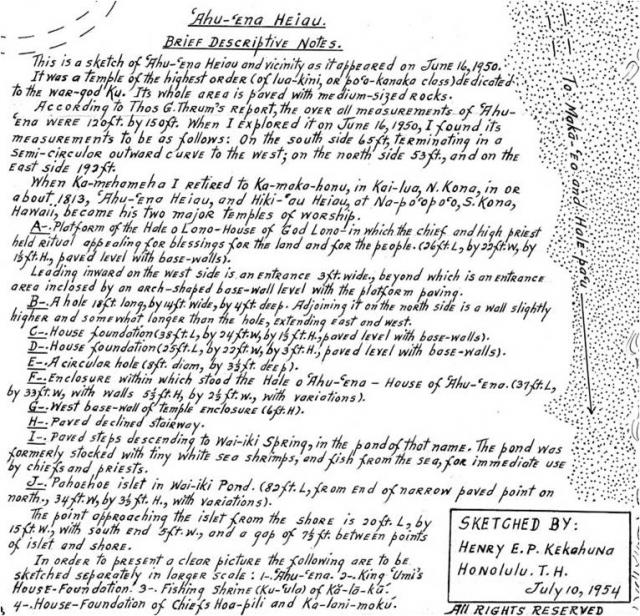 ʻAhu-ʻena Heiau.
Brief Descriptive Notes.
This is a sketch of ʻAhu-ʻena Heiau and vicinity as it appeared on June 16, 1950.
It was a temple of the highest order (of lua-kini, or poʻo-kanaka class) dedicated
to the war-god Ku. Its whole area is paved with medium-sized rocks.
According to Thos G. Thrum's report, the over all measurements of ʻAhu-
ʻena were 120ft. by 150ft. When I explored it on June 16, 1950, I found its
measurements to be as follows: On the south side 65ft, terminating in a
semi-circular outward curve to the west; on the north side 53ft., and on the
east side 192ft.
When Ka-mehameha I retired to Ka-maka-honu, in Kai-lua, N. Kona, in or
about 1813, ʻAhu-ʻena Heiau, and Hiki-ʻau Heiau, at Na-poʻopoʻo, S. Kona,
Hawaii, became his two major temples of worship.
A-. Platform of the Hale o Lono-House of God Lono-in which the chief and high priest
held ritual appealing for blessings for the land and for the people. (26ft. L, by 22ft. W, by
1½ft. H., paved level with base-walls).
Leading inward on the west side is an entrance 3ft. wide, beyond which is an entrance
area inclosed by an arch-shaped base-wall level with the platform paving.
B-. A hole 18ft long, by 14ft. wide, by 4ft. deep. Adjoining it on the north side is a wall slightly
higher and somewhat longer than the hole, extending east and west.
C-. House foundation (38ft. L, by 24ft. W, by 1½ft. H., paved level with base-walls).
D-. House foundation (25ft. L, by 22ft. W, by 3ft. H., paved level with base-walls).
E-. A circular hole (8ft. diam, by 3½ft. deep).
F-. Enclosure within which stood the Hale o ʻAhu-ʻena - House of ʻAhu-ʻena. (37ft. L,
by 33ft. W, with walls 5½ft. H, by 2½ft. W., with variations).
G-. West base-wall of temple enclosure (6ft. H).
H-. Paved declined stairway.
I-. Paved steps descending to Wai-iki Spring, in the pond of that name. The pond was
formerly stocked with tiny white sea shrimps, and fish from the sea, for immediate use
by chiefs and priests.
J-. Pahoehoe islet in Wai-iki Pond. (82ft. L, from end of narrow paved point on
north., 34ft. W, by 3½ft. H., with variations).
The point approaching the islet from the shore is 20ft. L, by
15ft. W., with south end 5ft. W., and a gap of 7½ft. between points
of islet and shore.
In order to present a clear picture the following are to be
sketched separately in larger scale: 1-. ʻAhu-ʻena. 2-. King ʻUmi's
House-Foundation. 3-. Fishing Shrine (Ku-ʻula) of Kā-lā-kā.
4-. House-Foundation of Chiefs Hoa-pili and Ka-lani-moku.
To Makaʻeo and Hale-palu
SKETCHED BY:
HENRY E. P. KEKAHUNA
HONOLULU. T. H.
July 10, 1954
All RIGHTS RESERVED